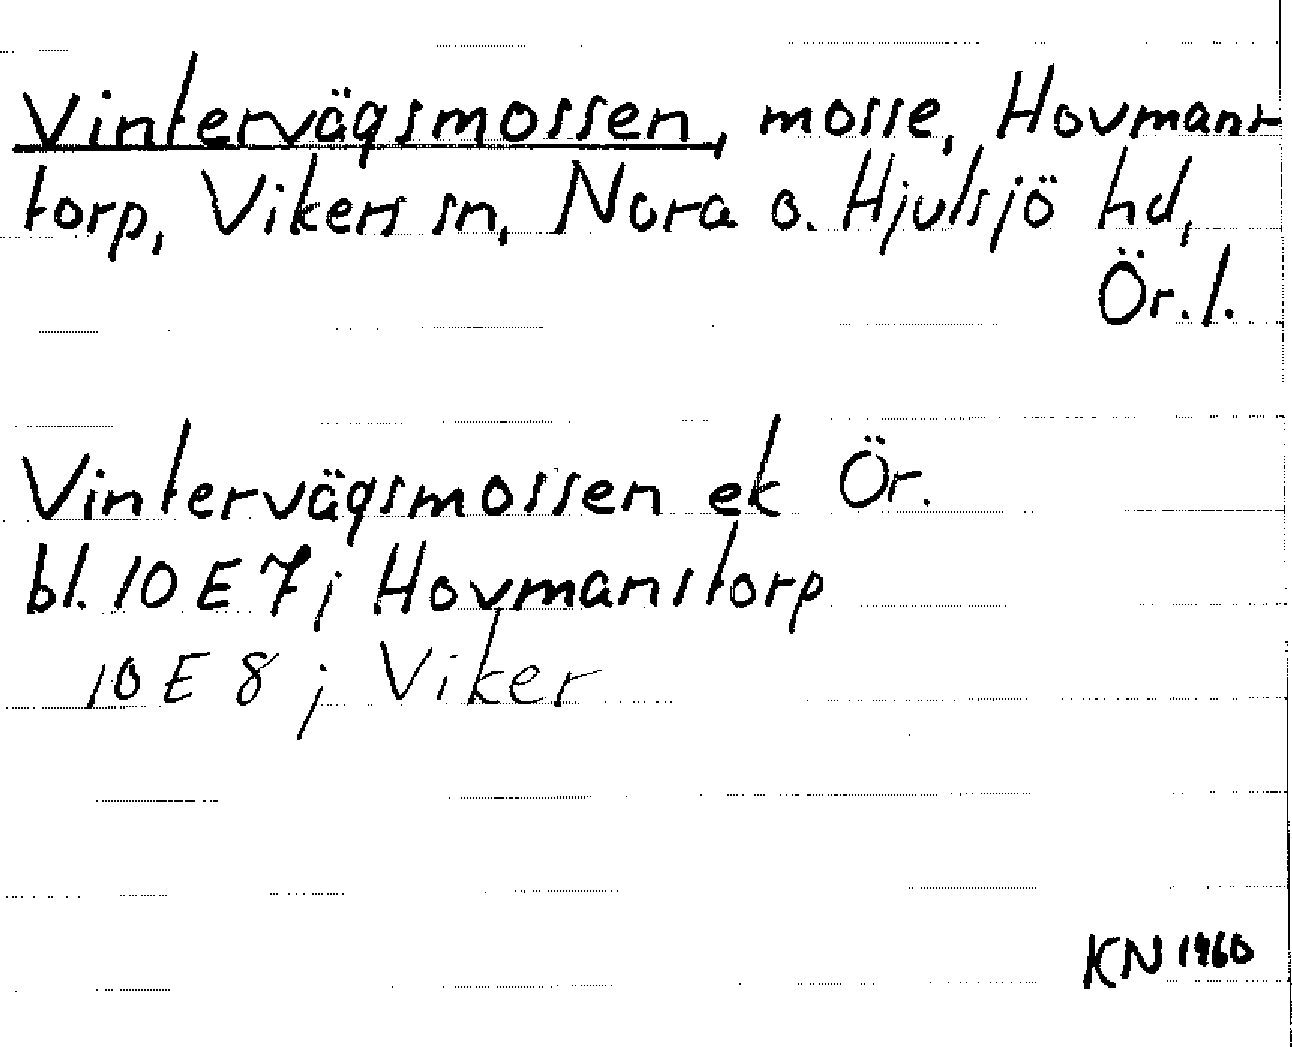 Vintervägsmossen, mosse, Hovmans-
torp, Vikers sn, Nora o. Hjulsjö hd,
Ör. l.
Vintervägsmossen ek Ör.
bl. 10 E 7; Hovmanstorp
10 E 8; Viker
KN 1960